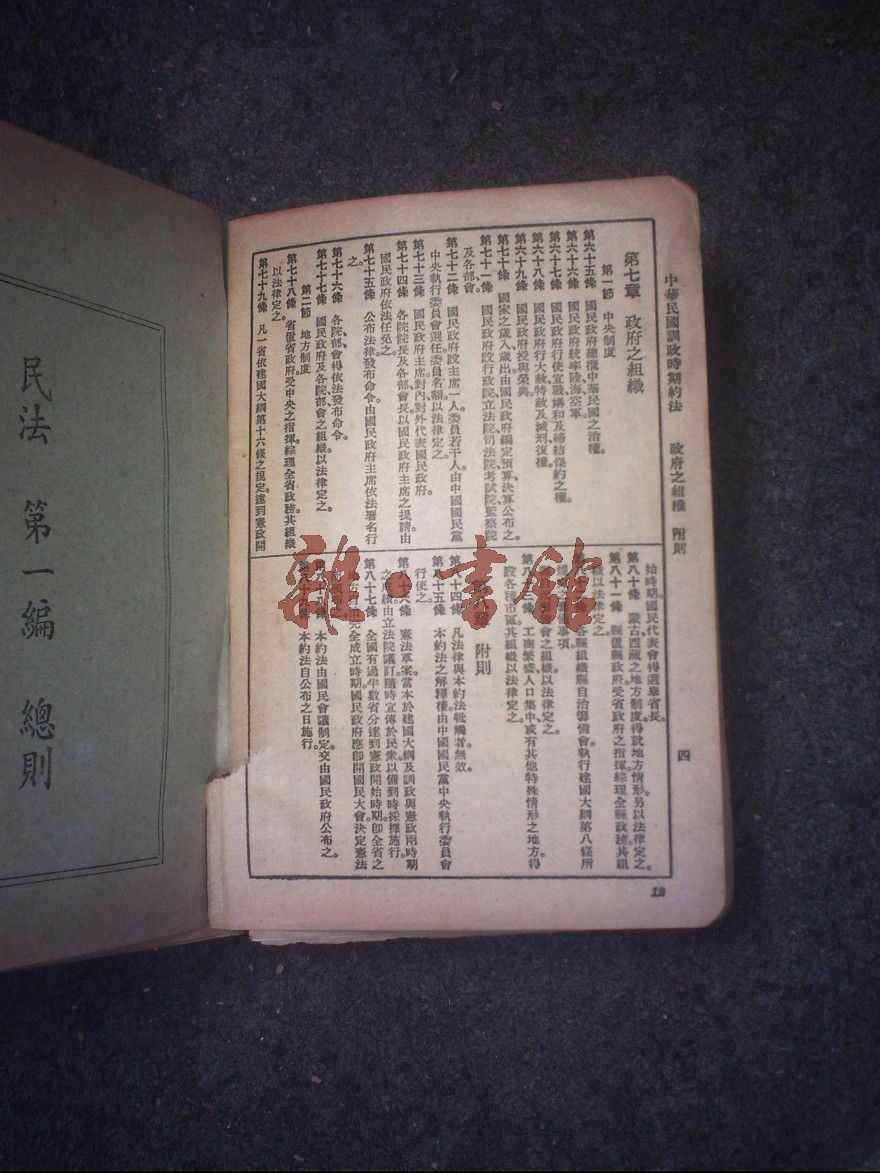 中華民國訓政時期約法　政府之組織　附則
四
第七章　政府之組織
第一節　中央制度
第六十五條　國民政府總攬中華民國之治權。
第六十六條　國民政府統率陸海空軍。
第六十七條　國民政府行使宣戰、媾和及締結條約之權。
第六十八條　國民政府行大赦、特赦及減刑、復權。
第六十九條　國民政府授與榮典。
第七十條　國家之歲入、歲出由國民政府編定預算、決算公布之。
第七十一條　國民政府設行政院、立法院、司法院、考試院、監察院
及各部會。
第七十二條　國民政府設主席一人、委員若干人、由中國國民黨
中央執行委員會選任、委員名額以法律定之。
第七十三條　國民政府主席對內、對外代表國民政府。
第七十四條　各院院長及各部會長以國民政府主席之提請、由
國民政府依法任免之。
第七十五條　公布法律、發布命令、由國民政府主席依法署名行
之。
第七十六條　各院、部、會得依法發布命令。
第七十七條　國民政府及各院、部、會之組織、以法律定之。
第二節　地方制度
第七十八條　省置省政府、受中央之指揮、綜理全省政務、其組織
以法律定之。
第七十九條　凡一省依建國大綱第十六條之規定、達到憲政開
始時期、國民代表會得選舉省長。
第八十條　蒙古、西藏之地方制度、得就地方情形、另以法律定之。
第八十一條　縣置縣政府、受省政府之指揮、綜理全縣政務、其組
以法律定之。
各縣組織縣自治籌備會、執行建國大綱第八條所
事項
會之組織、以法律定之。
工商繁盛、人口集中或有其他特殊情形之地方、得
設各種市區、其組織以法律定之。
附則
第八十四條　凡法律與本約法牴觸者無效。
第八十五條　本約法之解釋權、由中國國民黨中央執行委員會
行使之。
第八十六條　憲法草案當本於建國大綱及訓政與憲政兩時期
之成績、由立法院議訂、隨時宣傳於民衆、以備到時採擇施行。
第八十七條　全國有過半數省分達到憲政開始時期、即全省之
地方自治完全成立時期、國民政府應即開國民大會、決定憲法
布之。
八十八條　本約法由國民會議制定、交由國民政府公布之。
八十九條　本約法自公布之日施行。
12
民法　第一編　總則
雜·書館